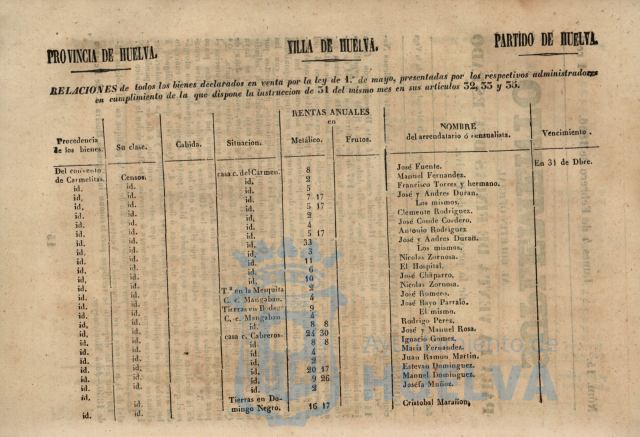 PROVINCIA DE HUELVA. VILLA DE HUELVA. PARTIDO DE HUELVA.
RELACIONES de todos los bienes declarados en venta por la ley de 1.º de mayo, presentadas por los respectivos administradores
en cumplimiento de la que dispone la instruccion de 31 del mismo mes en sus artículos 32, 33 y 35.
RENTAS ANUALES
en
Procedencia de los bienes. Su clase. Cabida. Situacion. Metálico. Frutos. NOMBRE del arrendatario ó censualista. Vencimiento.
Del convento de Carmelitas. Censos. casa c. del Carmen. 8 José Fuente. En 31 de Dbre.
id. id. id. 2 Manuel Fernandez.
id. id. id. 5 Francisco Torres y hermano.
id. id. id. 7 17 José y Andres Duran.
id. id. id. 5 17 Los mismos.
id. id. id. 2 Clemente Rodriguez.
id. id. id. 4 José Conde Cordero.
id. id. id. 5 17 Antonio Rodriguez
id. id. id. 33 José y Andres Duran.
id. id. id. 3 Los mismos.
id. id. id. 11 Nicolas Zornosa.
id. id. id. 6 El Hospital.
id. id. id. 10 José Chaparro.
id. id. T.ª en la Mezquita 2 Nicolas Zornosa.
id. id. C. c. Mangaban. 4 José Romero.
id. id. Tierras en 9 José Rayo Parralo.
id. id. C. c. Mangaban 4 El mismo.
id. id. id. 8 8 Rodrigo Perez.
id. id. casa c. Cabreros. 24 30 José y Manuel Rosa.
id. id. id. 8 8 Ignacio Gomez.
id. id. id. 4 Maria Fernandez.
id. id. id. 2 Juan Ramon Martin.
id. id. id. 20 17 Estevan Dominguez.
id. id. id. 9 26 Manuel Dominguez.
id. id. id. 2 Josefa Muñoz.
id. id. Tierras en Domingo Negro. 16 17 Cristobal Marañon.
Ayuntamiento de
HUELVA